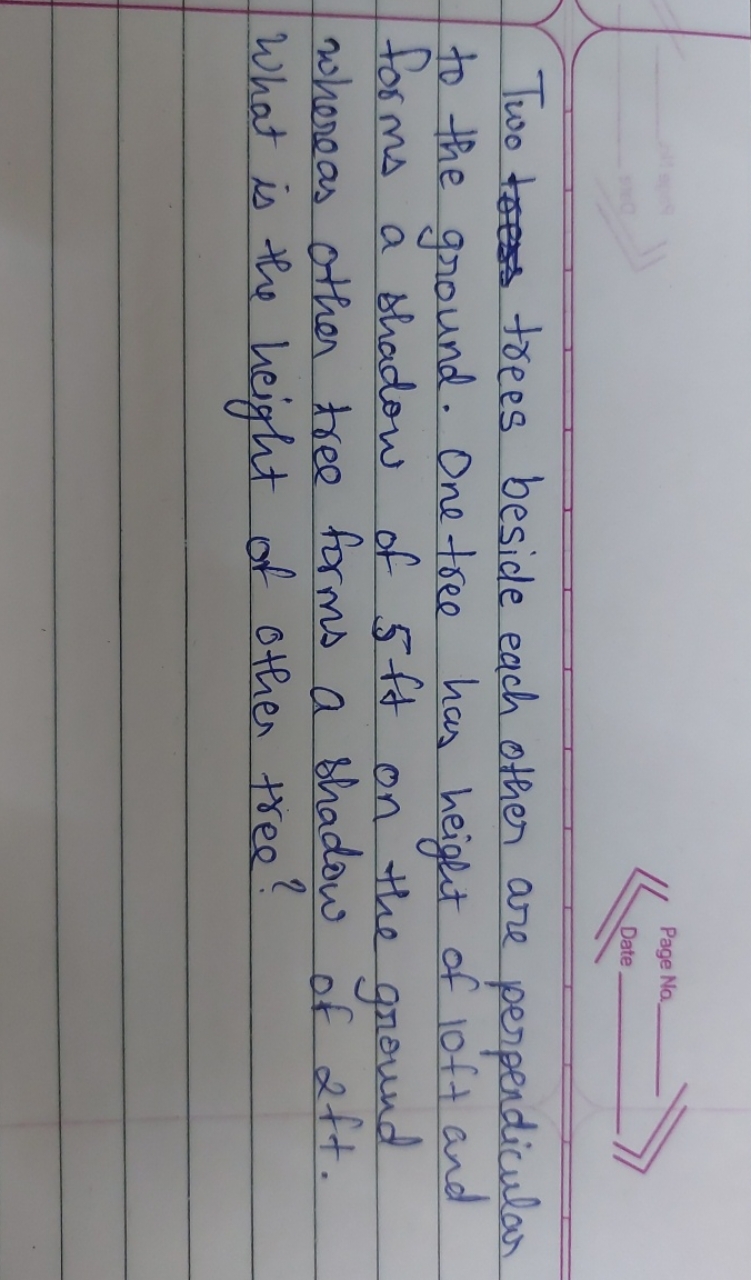 Page No.
Date
Two trees beside each other are perpendicular
to the ground. One tree has height of 10ft and
forms a shadow of 5ft on the ground
whereas other tree forms a shadow of 2ft.
What is the height of other tree?